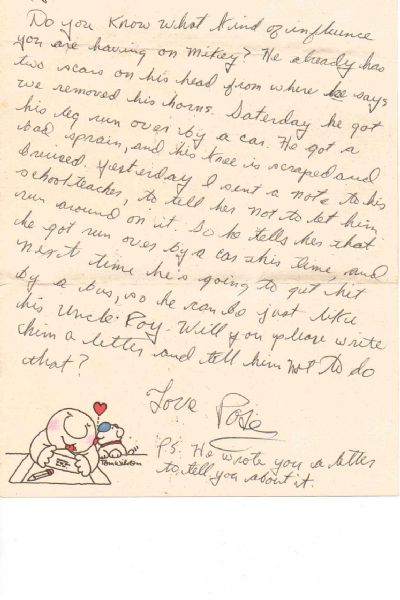 Do you know what kind of influence
you are having on Mikey? He already has
two scars on his head from where he says
we removed his horns. Saturday he got
his leg run over by a car. He got a
bad sprain, and his knee is scraped and
bruised. Yesterday I sent a note to his
schoolteacher, to tell her not to let him
run around on it. So he tells her that
he got run over by a car this time, and
next time he's going to get hit
by a bus, so he can be just like
his Uncle Roy. Will you please write
him a letter and tell him not to do
that?
Love Posie
P.S. He wrote you a letter
to tell you about it.
Tom Wilson